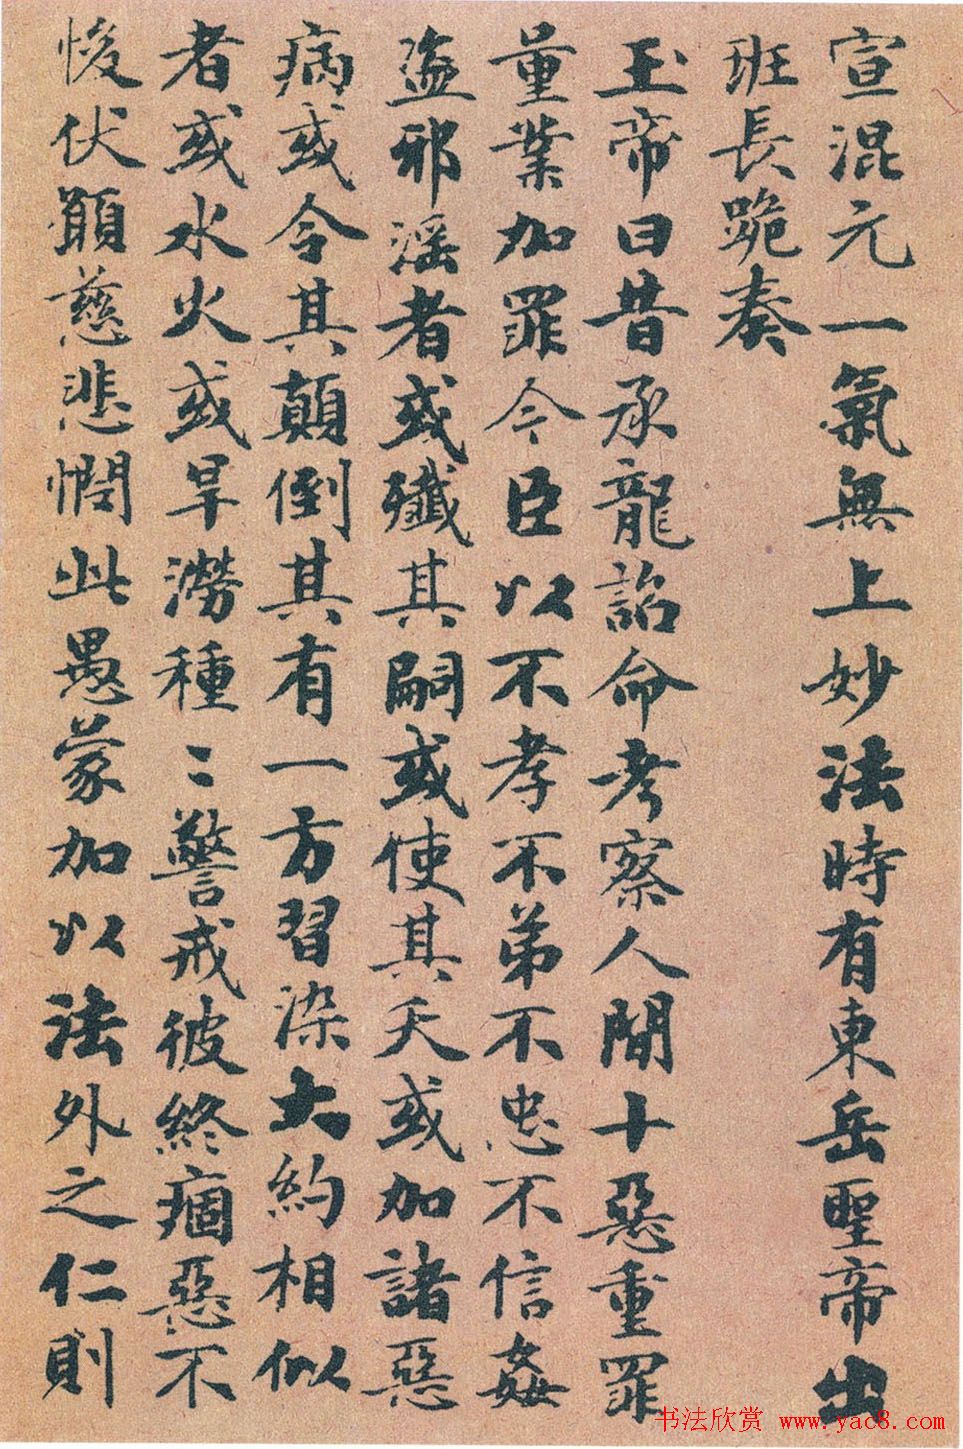 宣混元一氣無上妙法時有東岳聖帝出
班長跪奏
玉帝曰昔承龍詔命考察人間十惡重罪
量業加罪今臣以不孝不弟不忠不信姦
盗邪滛者或殲其嗣或使其夭或加諸惡
病或令其顛倒其有一方習染大約相似
者或水火或旱澇種〻警戒彼終痼惡不
悛伏願慈悲憫此愚蒙加以法外之仁則
书法欣赏 www.yac8.com